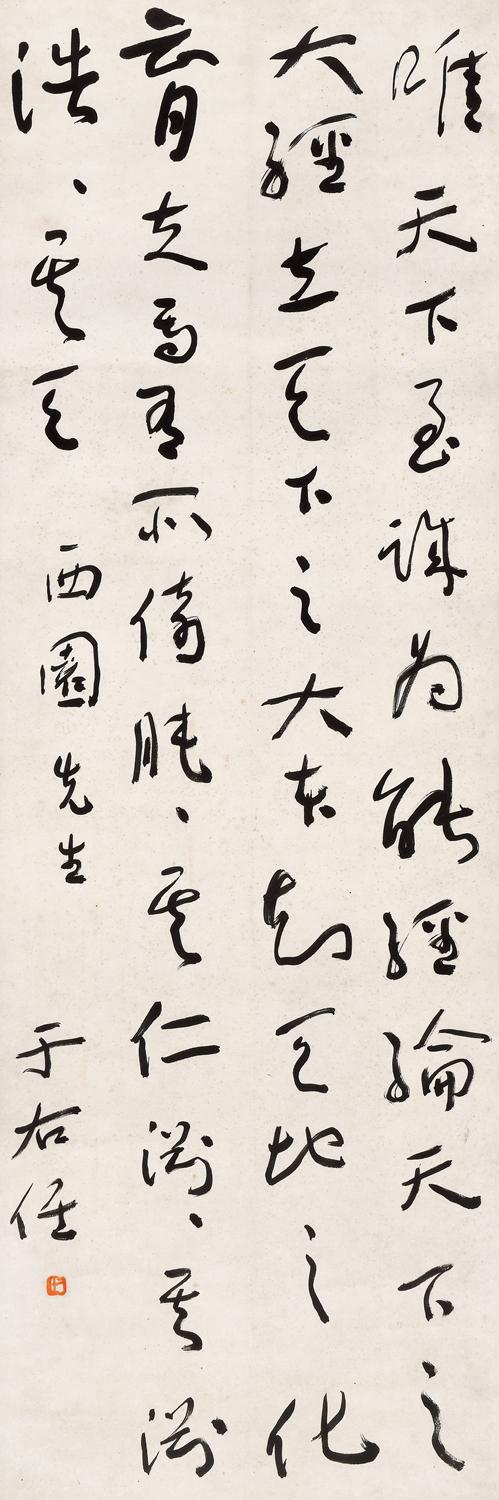 唯天下至誠為能經綸天下之
大經立天下之大本知天地之化
育夫焉有所倚肫、其仁淵、其淵
浩、其天 西園先生
于右任